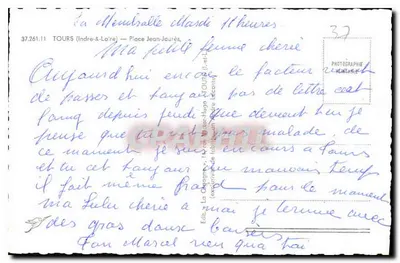 la Membrolle Mardi 11 heures
37.261.11 TOURS (Indre-&-Loire) — Place Jean-Jaurès.
37
Ma petite femme chérie
PHOTOGRAPHIE
Aujourd'hui encore le facteur vient
de passer et toujours pas de lettre c'est
long depuis jeudi que devient tu je
pense que tu n'est pas malade, de
ce moment je suis en cours à Tours
et tu sait toujours du mauvais temps
il fait même froid pour le moment
ma Lulu chérie a moi je termine avec
des gros doux baisers
Ton Marcel rien qu'a toi